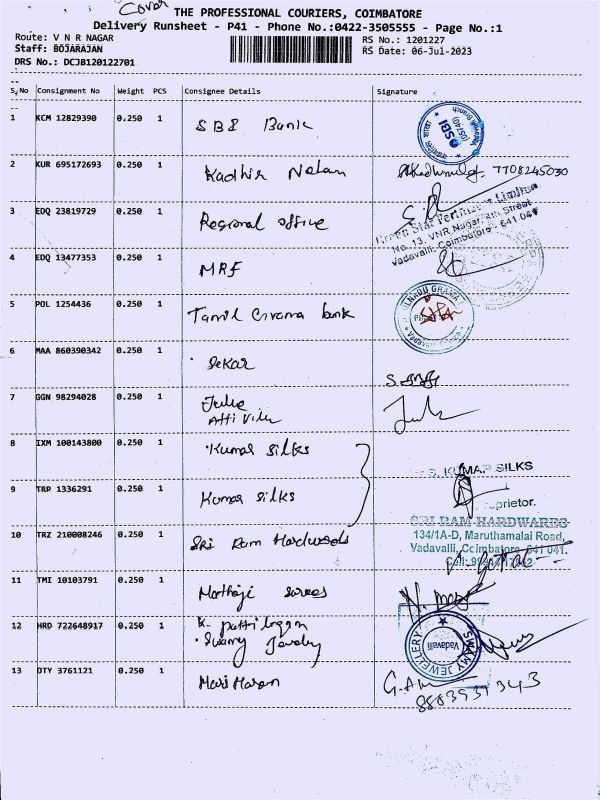 Cover
THE PROFESSIONAL COURIERS, COIMBATORE
Delivery Runsheet - P41 - Phone No.:0422-3505555 - Page No.:1
Route: V N R NAGAR
Staff: BOJARAJAN
DRS No.: DCJB120122701
RS No.: 1201227
RS Date: 06-Jul-2023
S.No Consignment No Weight PCS Consignee Details Signature
1 KCM 12829390 0.250 1 SBI Bank
SBI
2 KUR 695172693 0.250 1 Kadhir Nelan 7708245030
3 EDQ 23819729 0.250 1 Regional office
Green Star Fertilizers Limited
No. 13, VNR Nagar, 4th Street
Vadavalli, Coimbatore - 641 041
4 EDQ 13477353 0.250 1 MRF
5 POL 1254436 0.250 1 Tamil Grama bank
6 MAA 860390342 0.250 1 Sekar
7 GGN 98294028 0.250 1 Julie
8 IXM 100143800 0.250 1 Kumar Silks
S. KUMAR SILKS
9 TRP 1336291 0.250 1 Kumar Silks
oprietor.
10 TRZ 210008246 0.250 1 Sri Ram Hardwoods
SRI RAM HARDWARES
134/1A-D, Maruthamalai Road,
Vadavalli, Coimbatore - 641 041.
11 TMI 10103791 0.250 1
12 HRD 722648917 0.250 1
Swamy
SWAMY JEWELLERY
Vadavalli
13 OTY 3761121 0.250 1 Mari Haran